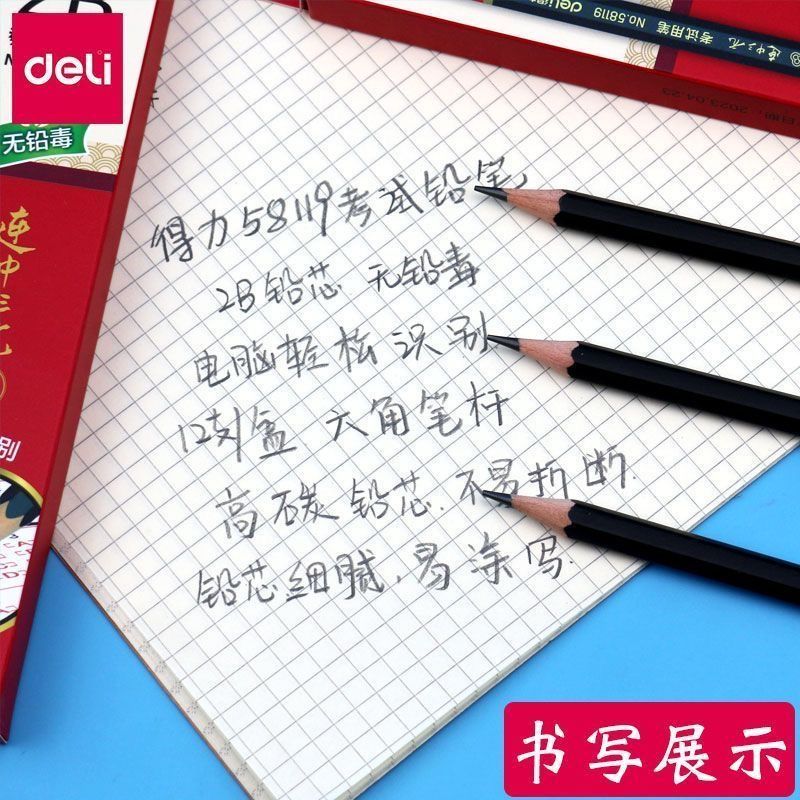 deli
无铅毒
连中三元
别
deli
No.58119
连中三元 考试用笔
日期：2023.04.23
得力58119考试铅笔
2B铅芯 无铅毒
电脑轻松识别
12支/盒 六角笔杆
高碳铅芯.不易折断.
铅芯细腻.易涂写.
书写展示